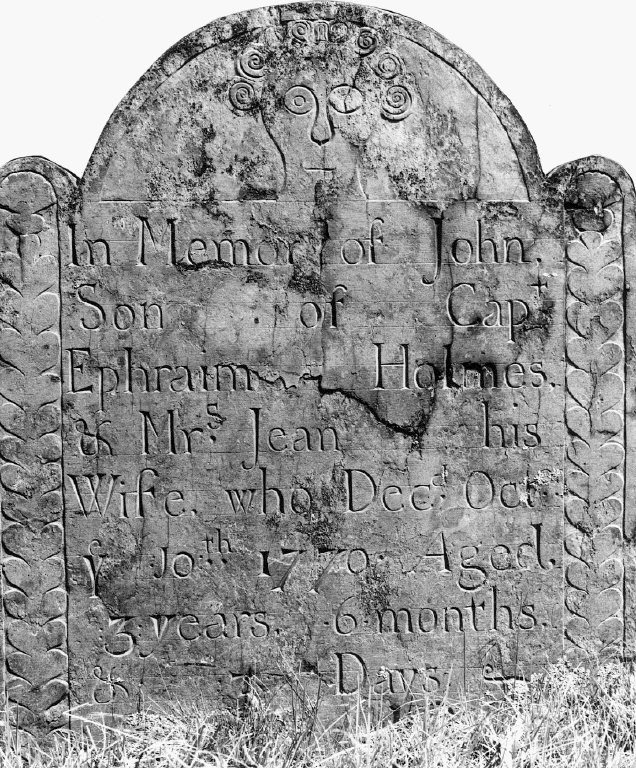 In Memory of John,
Son of Capᵗ
Ephraim Holmes.
& Mrˢ. Jean his
Wife. who Decᵈ. Octʳ
yᵉ 10ᵗʰ 1770 Aged.
3 years. 6 months.
& Days